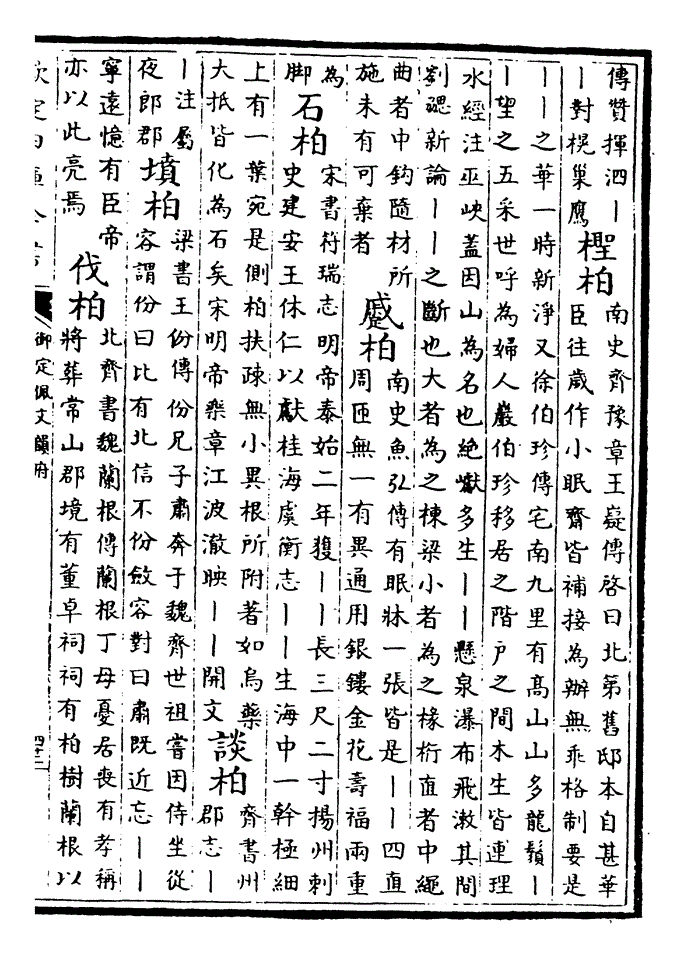 傳贊揮泗｜
｜對榥巢鷹
檉柏
南史齊豫章王嶷傳啓曰北第舊邸本自甚華
臣往歲作小眠齋皆補接為辦無乖格制要是
｜｜之華一時新淨又徐伯珍傳宅南九里有髙山山多龍鬚｜
｜望之五采世呼為婦人巖伯珍移居之階戶之間木生皆連理
水經注巫峽蓋因山為名也絶巘多生｜｜懸泉瀑布飛漱其間
劉勰新論｜｜之斷也大者為之棟梁小者為之椽桁直者中繩
曲者中鈎隨材所
施未有可棄者
蹙柏
南史魚弘傳有眠牀一張皆是｜｜四直
周匝無一有異通用銀鏤金花壽福兩重
為
脚
石柏
宋書符瑞志明帝泰始二年獲｜｜長三尺二寸揚州刺
史建安王休仁以獻桂海虞衡志｜｜生海中一幹極細
上有一葉宛是側柏扶疎無小異根所附著如烏藥
大抵皆化為石矣宋明帝樂章江波澈映｜｜開文
談柏
齊書州
郡志｜
｜注屬
夜郎郡
墳柏
梁書王份傳份兄子肅奔于魏齊世祖嘗因侍坐從
容謂份曰比有北信不份斂容對曰肅既近忘｜｜
寧遠憶有臣帝
亦以此亮焉
伐柏
北齊書魏蘭根傳蘭根丁母憂居喪有孝稱
將葬常山郡境有董卓祠祠有柏樹蘭根以
欽定四庫全書
御定佩文韻府